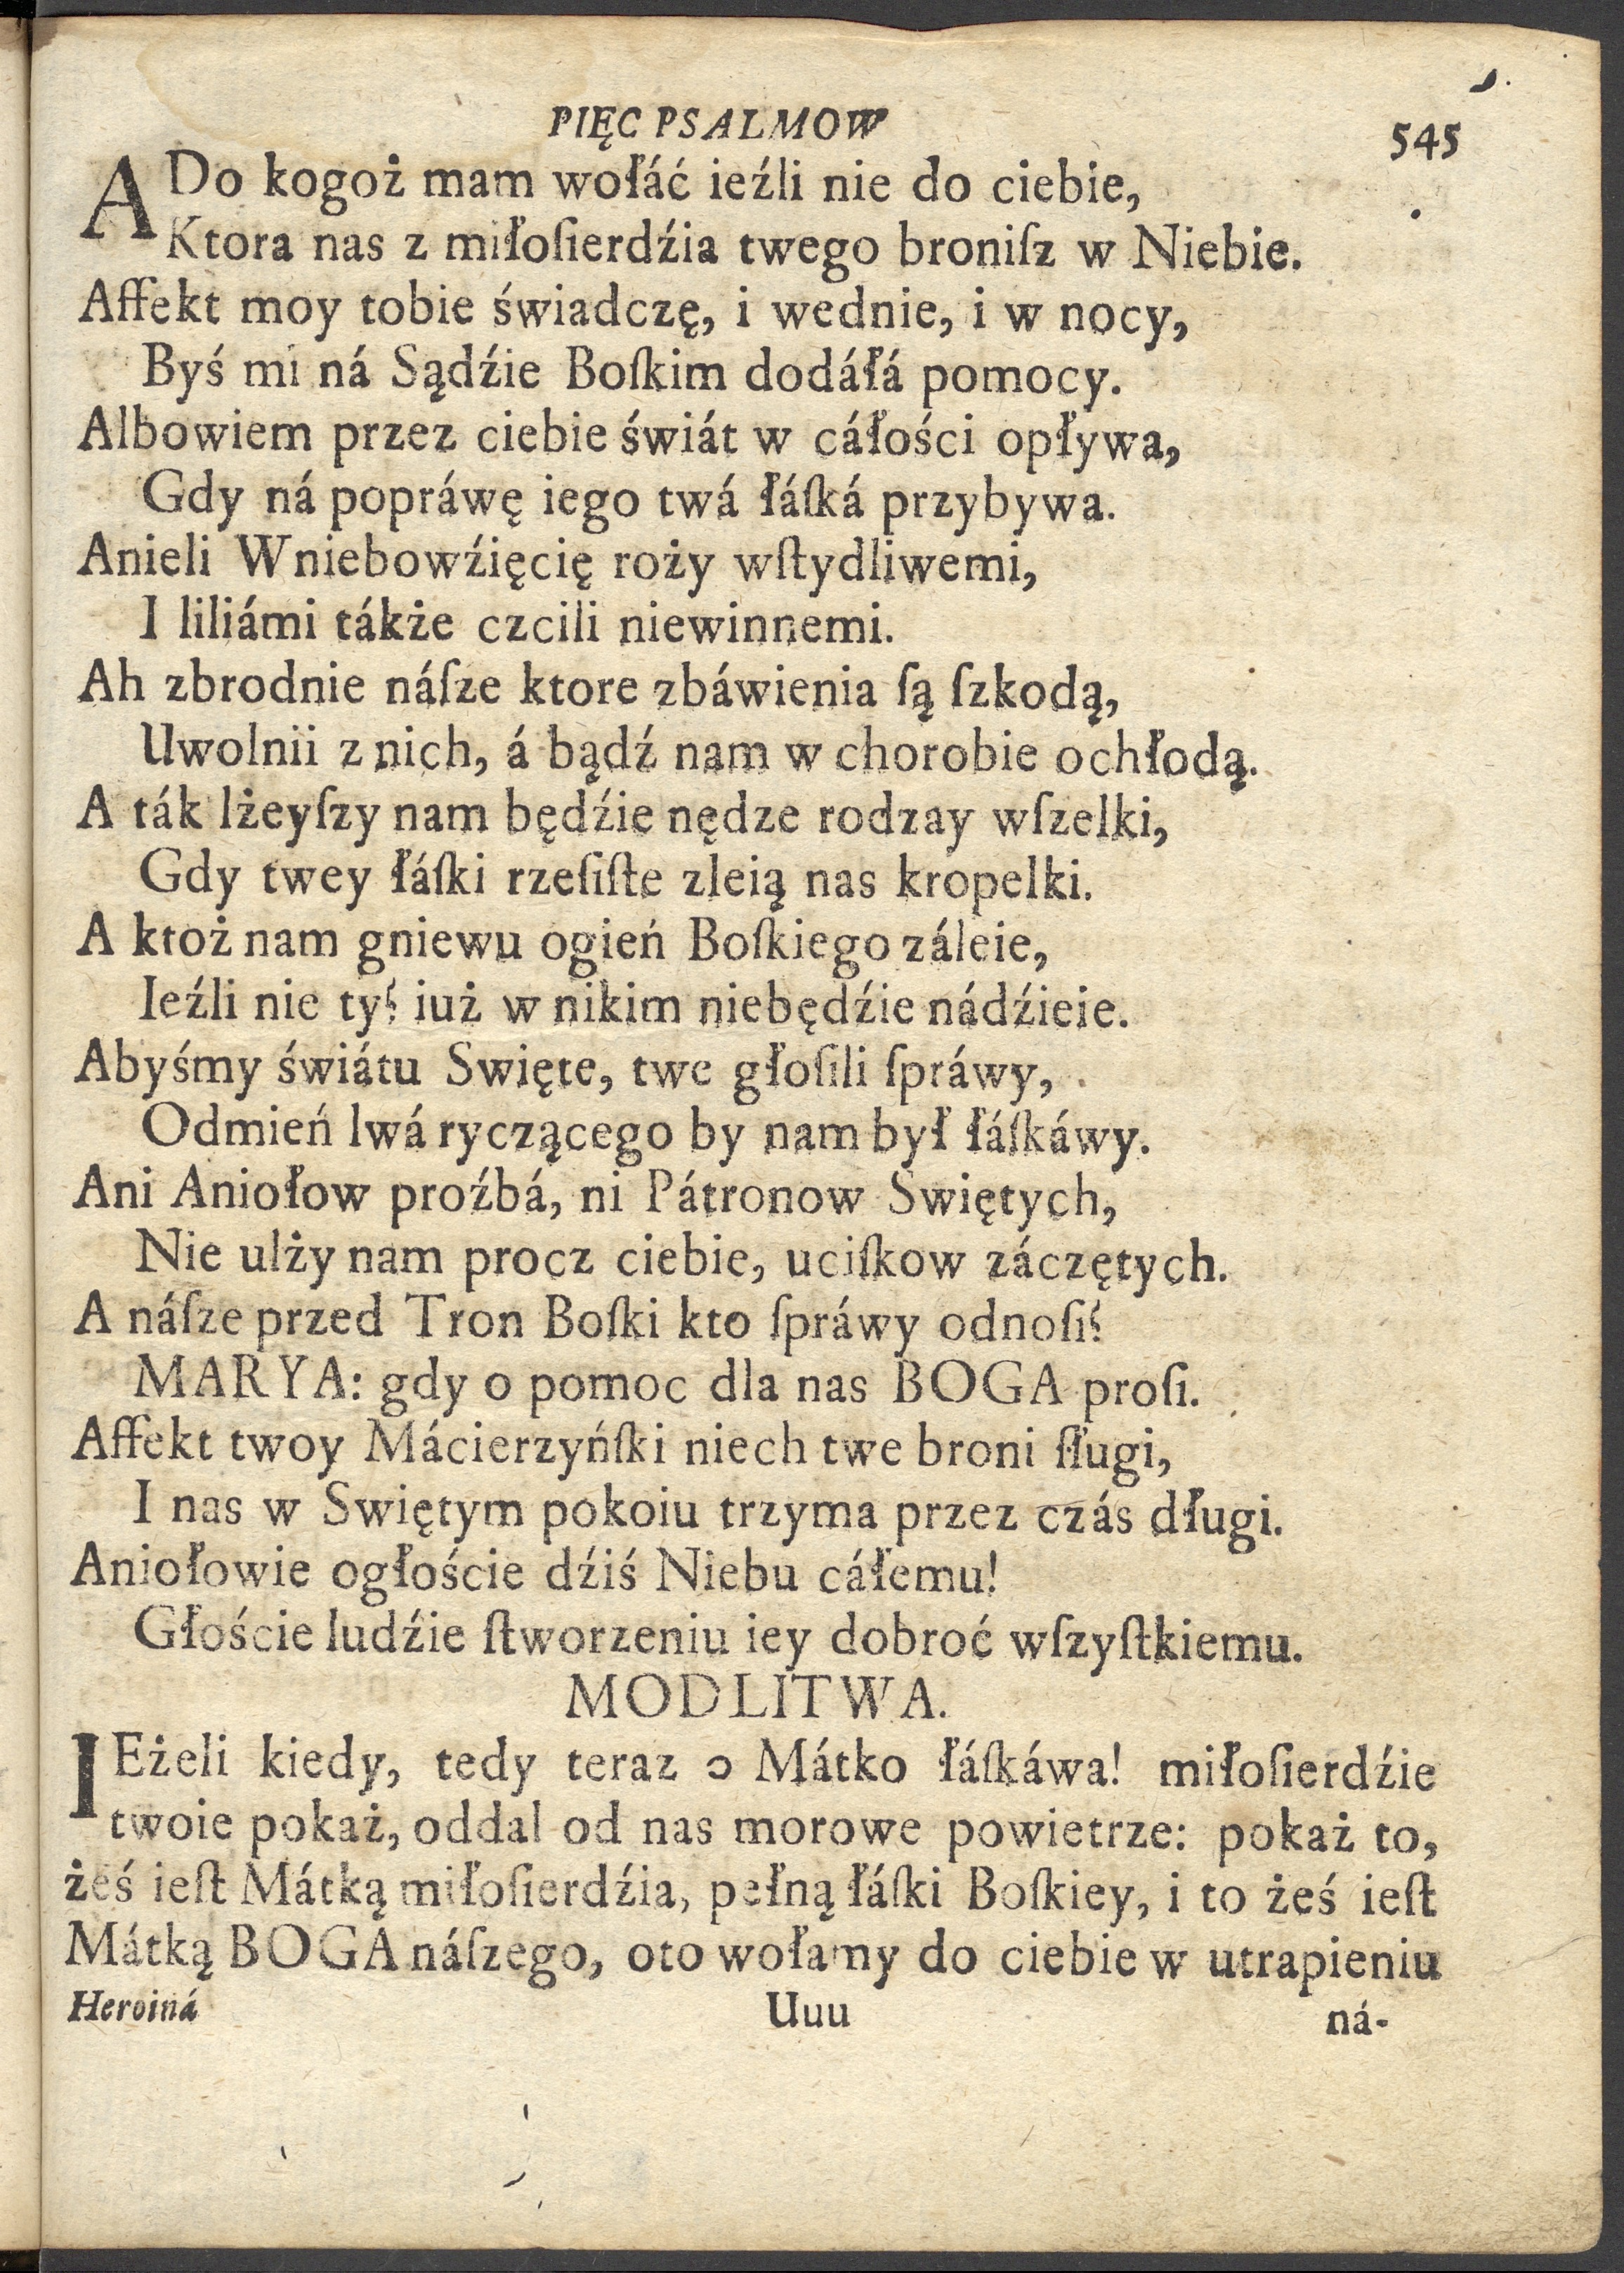 PIĘC PSALMOW 545
ADo kogoż mam wołáć ieźli nie do ciebie,
Ktora nas z miłoſierdźia twego broniſz w Niebie.
Affekt moy tobie świadczę, i wednie, i w nocy,
Byś mi ná Sądźie Boſkim dodáłá pomocy.
Albowiem przez ciebie świát w cáłości opływa,
Gdy ná popráwę iego twá łáſká przybywa.
Anieli Wniebowźięcię roży wſtydliwemi,
I liliámi tákże czcili niewinnemi.
Ah zbrodnie náſze ktore zbáwienia ſą ſzkodą,
Uwolnii z nich, á bądź nam w chorobie ochłodą.
A ták lżeyſzy nam będźie nędze rodzay wſzelki,
Gdy twey łáſki rzeſiſte zleią nas kropelki.
A ktoż nam gniewu ogień Boſkiego záleie,
Ieźli nie ty? iuż w nikim niebędźie nádźieie.
Abyśmy świátu Swięte, twe głoſili ſpráwy,
Odmień lwá ryczącego by nam był łáſkáwy.
Ani Aniołow proźbá, ni Pátronow Swiętych,
Nie ulży nam procz ciebie, uciſkow záczętych.
A náſze przed Tron Boſki kto ſpráwy odnoſi?
MARYA: gdy o pomoc dla nas BOGA proſi.
Affekt twoy Mácierzyńſki niech twe broni ſługi,
I nas w Swiętym pokoiu trzyma przez czás długi.
Aniołowie ogłoście dźiś Niebu cáłemu!
Głoście ludźie ſtworzeniu iey dobroć wſzyſtkiemu.
MODLITWA.
IEżeli kiedy, tedy teraz ɔ Mátko łáſkáwa! miłoſierdźie
twoie pokaż, oddal od nas morowe powietrze: pokaż to,
żeś ieſt Mátką miłoſierdźia, pełną łáſki Boſkiey, i to żeś ieſt
Mátką BOGA náſzego, oto wołamy do ciebie w utrapieniu
Heroiná Uuu ná-